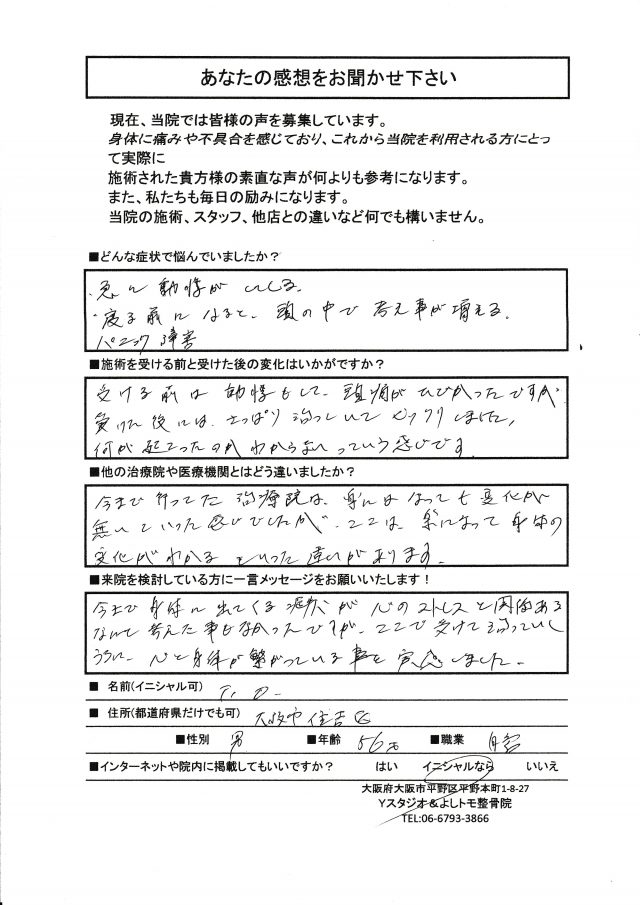 あなたの感想をお聞かせ下さい
現在、当院では皆様の声を募集しています。
身体に痛みや不具合を感じており、これから当院を利用される方にとっ
て実際に
施術された貴方様の素直な声が何よりも参考になります。
また、私たちも毎日の励みになります。
当院の施術、スタッフ、他店との違いなど何でも構いません。
■どんな症状で悩んでいましたか？
・急に動悸がしてくる。
・寝る前になると、頭の中で考え事が増える。
パニック障害
■施術を受ける前と受けた後の変化はいかがですか？
受ける前は動悸もして、頭痛がひどかったですが
受けた後には、さっぱり治っていてビックリしました。
何が起こったのかわからないっていう感じです。
■他の治療院や医療機関とはどう違いましたか？
今まで行ってた治療院は、楽にはなっても変化が
無いといった感じでしたが、ここは、楽になって身体の
変化がわかるといった違いがあります。
■来院を検討している方に一言メッセージをお願いいたします！
今まで身体に出てくる症状が心のストレスと関係ある
なんて考えた事もなかったですが、ここで受けて治っていく
うちに、心と身体が繋がっている事を実感しました。
■ 名前(イニシャル可)
■ 住所(都道府県だけでも可) 大阪市住吉区
■性別 男 ■年齢 56才 ■職業 自営
■インターネットや院内に掲載してもいいですか？ はい イニシャルなら いいえ
大阪府大阪市平野区平野本町1-8-27
Yスタジオ＆よしトモ整骨院
TEL:06-6793-3866